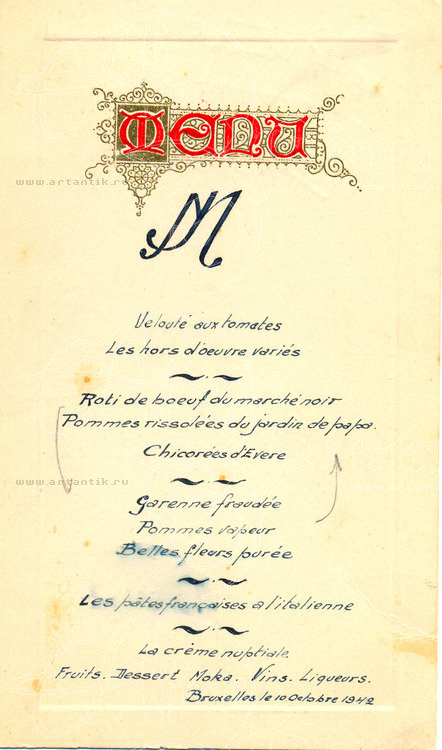 MENU
www.artantik.ru
M
Velouté aux tomates
Les hors d'oeuvre variés
Roti de boeuf du marché noir
Pommes rissolées du jardin de papa.
Chicorées d'Evere
www.artantik.ru
Garenne fraudée
Pommes vapeur
Belles fleurs purée
Les pâtes françaises a l'italienne
La crème nuptiale
Fruits. Dessert Moka. Vins. Liqueurs.
Bruxelles le 10 Octobre 1942